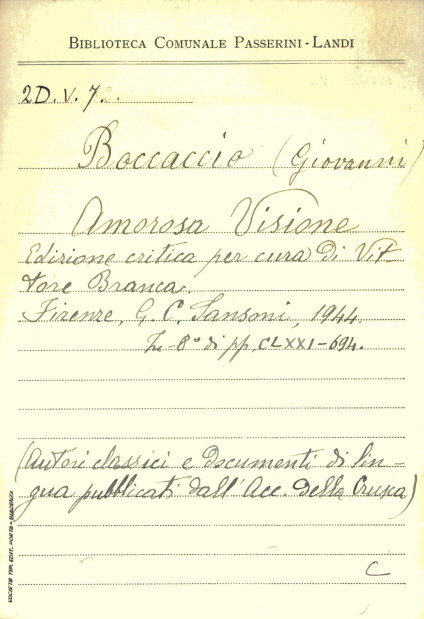 BIBLIOTECA COMUNALE PASSERINI-LANDI
2D.V.72.
Boccaccio (Giovanni)
Amorosa Visione
Edizione critica per cura di Vit-
tore Branca.
Firenze, G. C. Sansoni, 1944.
In-8° di pp. CLXXI-694.
(Autori classici e documenti di lin-
gua pubblicati dall'Acc. della Crusca)
C
SOCIETÀ TIP. EDIT. PORTA - PIACENZA